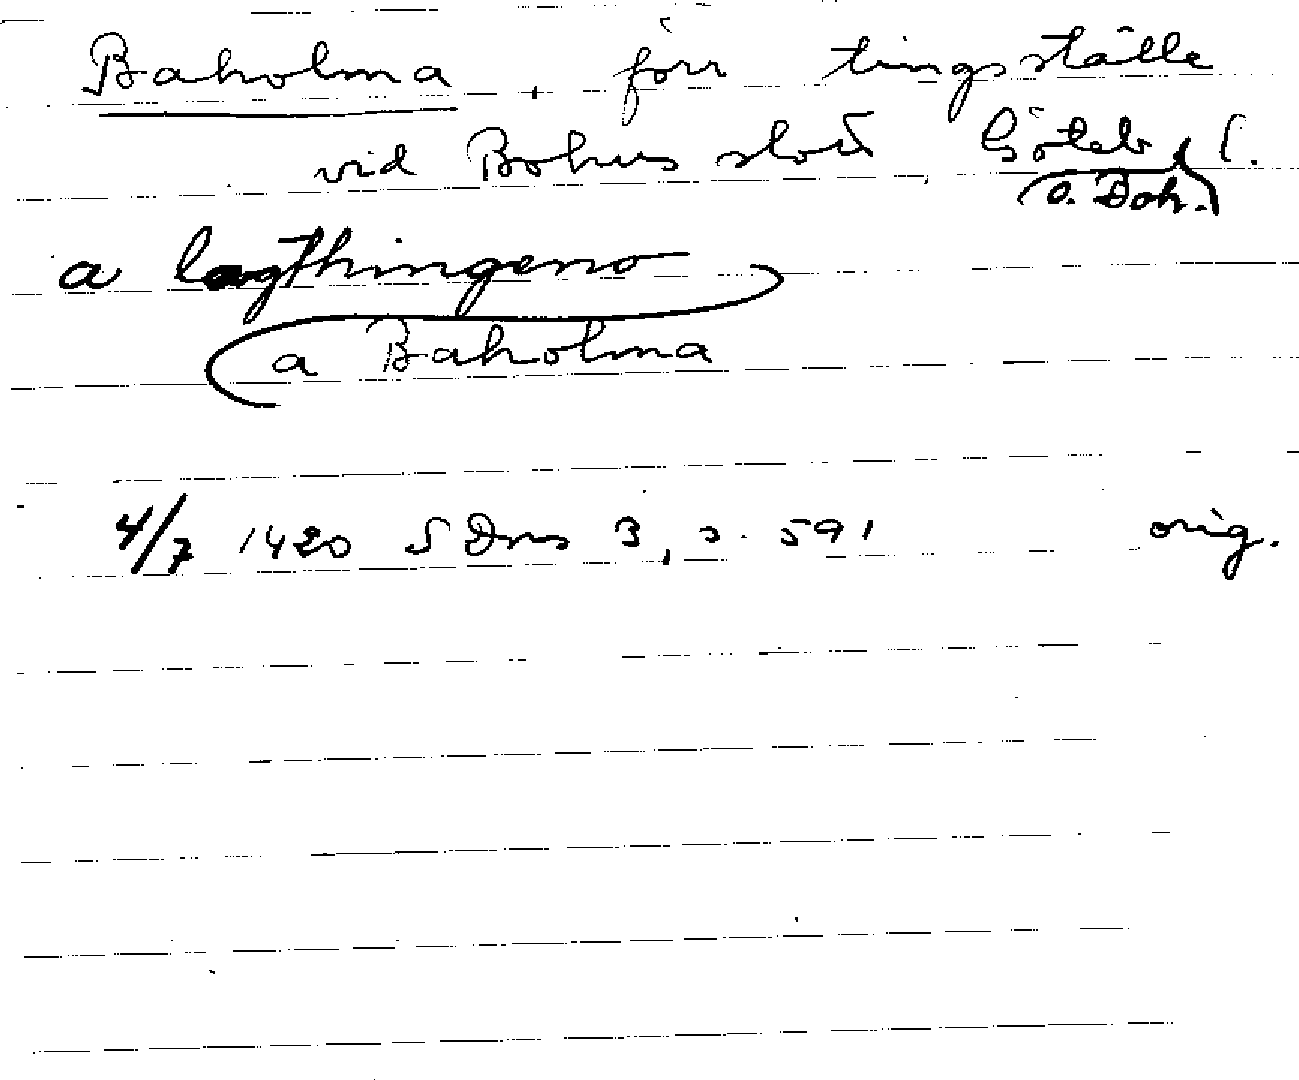 Baholma, förr tingsställe
vid Bohus slott Göteb. l.
o. Boh.
a lagthingeno
a Baholma
4/7 1420 SDns 3, s. 591 orig.